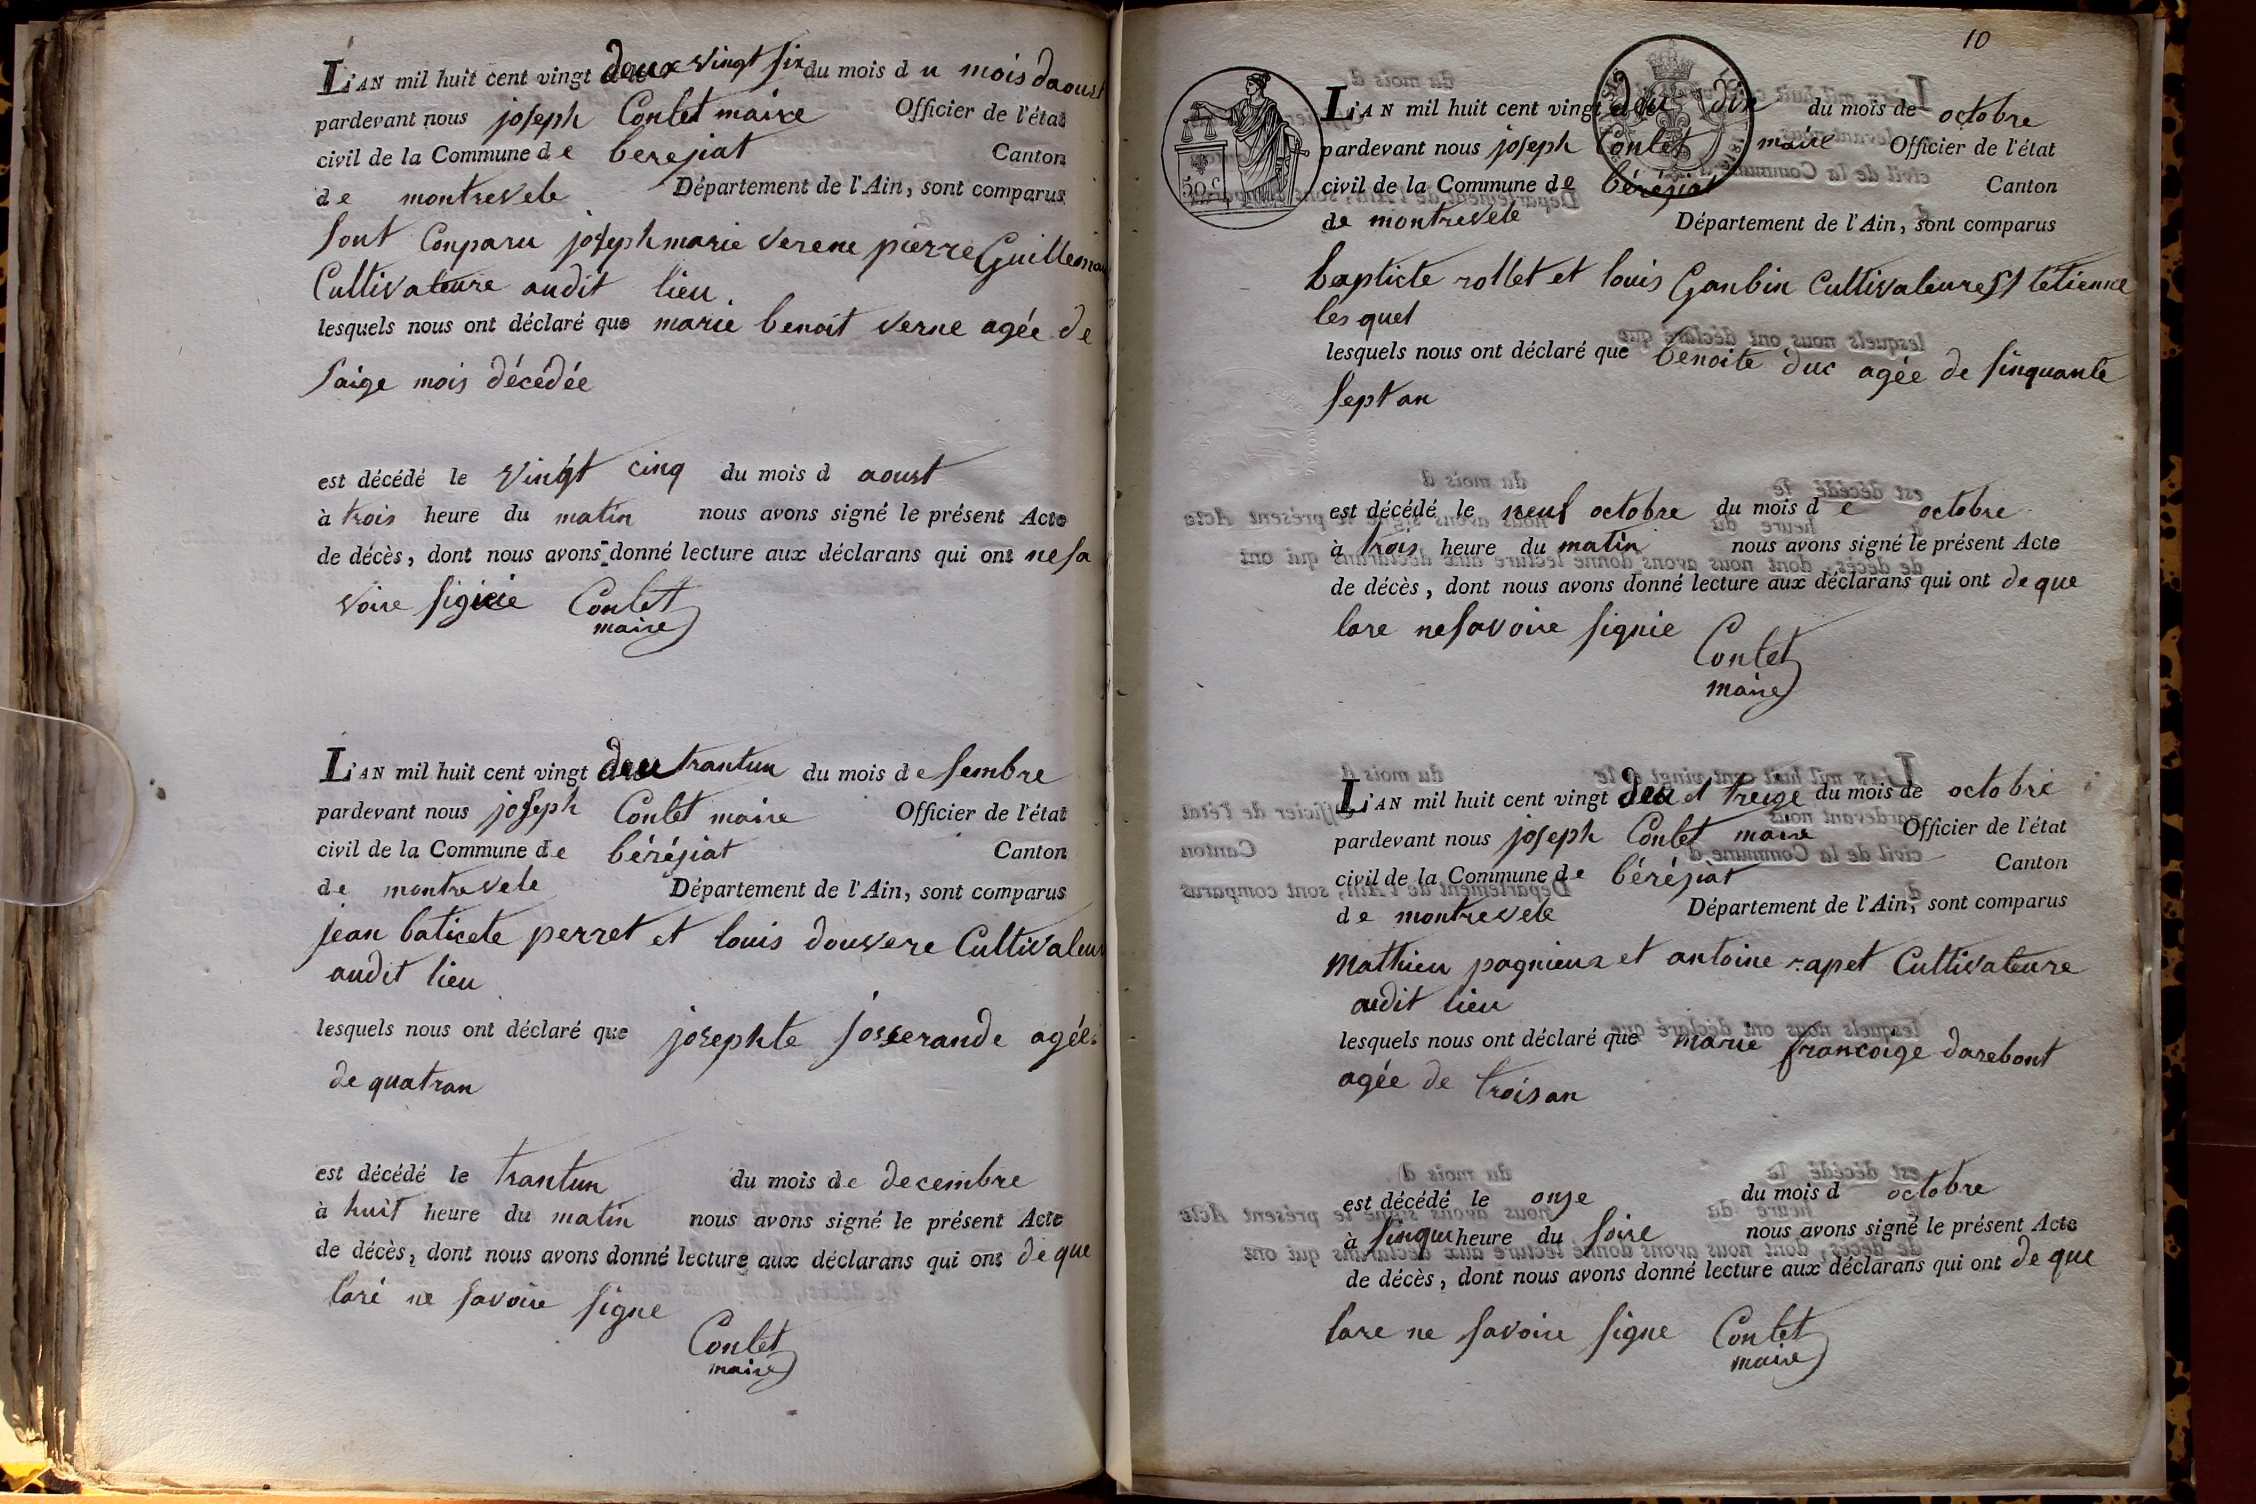 L'AN mil huit cent vingt deux vingt six du mois d u mois daoust
pardevant nous joseph Contet maire Officier de l'état
civil de la Commune de bereziat Canton
de montrevele Département de l'Ain, sont comparus
sont Conparu joseph marie verene pierre Guillemau
Cultivateure audit lieu
lesquels nous ont déclaré que marie benoit verne agée de
saize mois décédée
est décédé le vingt cinq du mois d aoust
à trois heure du matin nous avons signé le présent Acte
de décès, dont nous avons donné lecture aux déclarans qui ont ne sa
voire signie Contet
maire
L'AN mil huit cent vingt deu trantun du mois de sembre
pardevant nous joseph Contet maire Officier de l'état
civil de la Commune de béréziat Canton
de montrevele Département de l'Ain, sont comparus
jean baticete perret et louis douvere Cultivateur
audit lieu
lesquels nous ont déclaré que josephte josserande agée
de quatran
est décédé le trantun du mois de decembre
à huit heure du matin nous avons signé le présent Acte
de décès, dont nous avons donné lecture aux déclarans qui ont de que
laré ne savoire signe
Contet
maire
10
50 c.
L'AN mil huit cent vingt deu dix du mois de octobre
pardevant nous joseph Contet maire Officier de l'état
civil de la Commune de béréziat Canton
de montrevele Département de l'Ain, sont comparus
bapticte rollet et louis Ganbin Cultivateure St tetienne
les quel
lesquels nous ont déclaré que benoite duc agée de sinquante
sept an
est décédé le neuf octobre du mois d e octobre
à trois heure du matin nous avons signé le présent Acte
de décès, dont nous avons donné lecture aux déclarans qui ont de que
lare ne savoire signie
Contet
maire
L'AN mil huit cent vingt deu et treize du mois de octobre
pardevant nous joseph Contet maire Officier de l'état
civil de la Commune de béréziat Canton
de montrevele Département de l'Ain, sont comparus
Mathieu pagnieux et antoine rapet Cultivateure
audit lieu
lesquels nous ont déclaré que marie francoize darebont
agée de troisan
est décédé le onze du mois d octobre
à sinque heure du soire nous avons signé le présent Acte
de décès, dont nous avons donné lecture aux déclarans qui ont de que
lare ne savoire signe Contet
maire